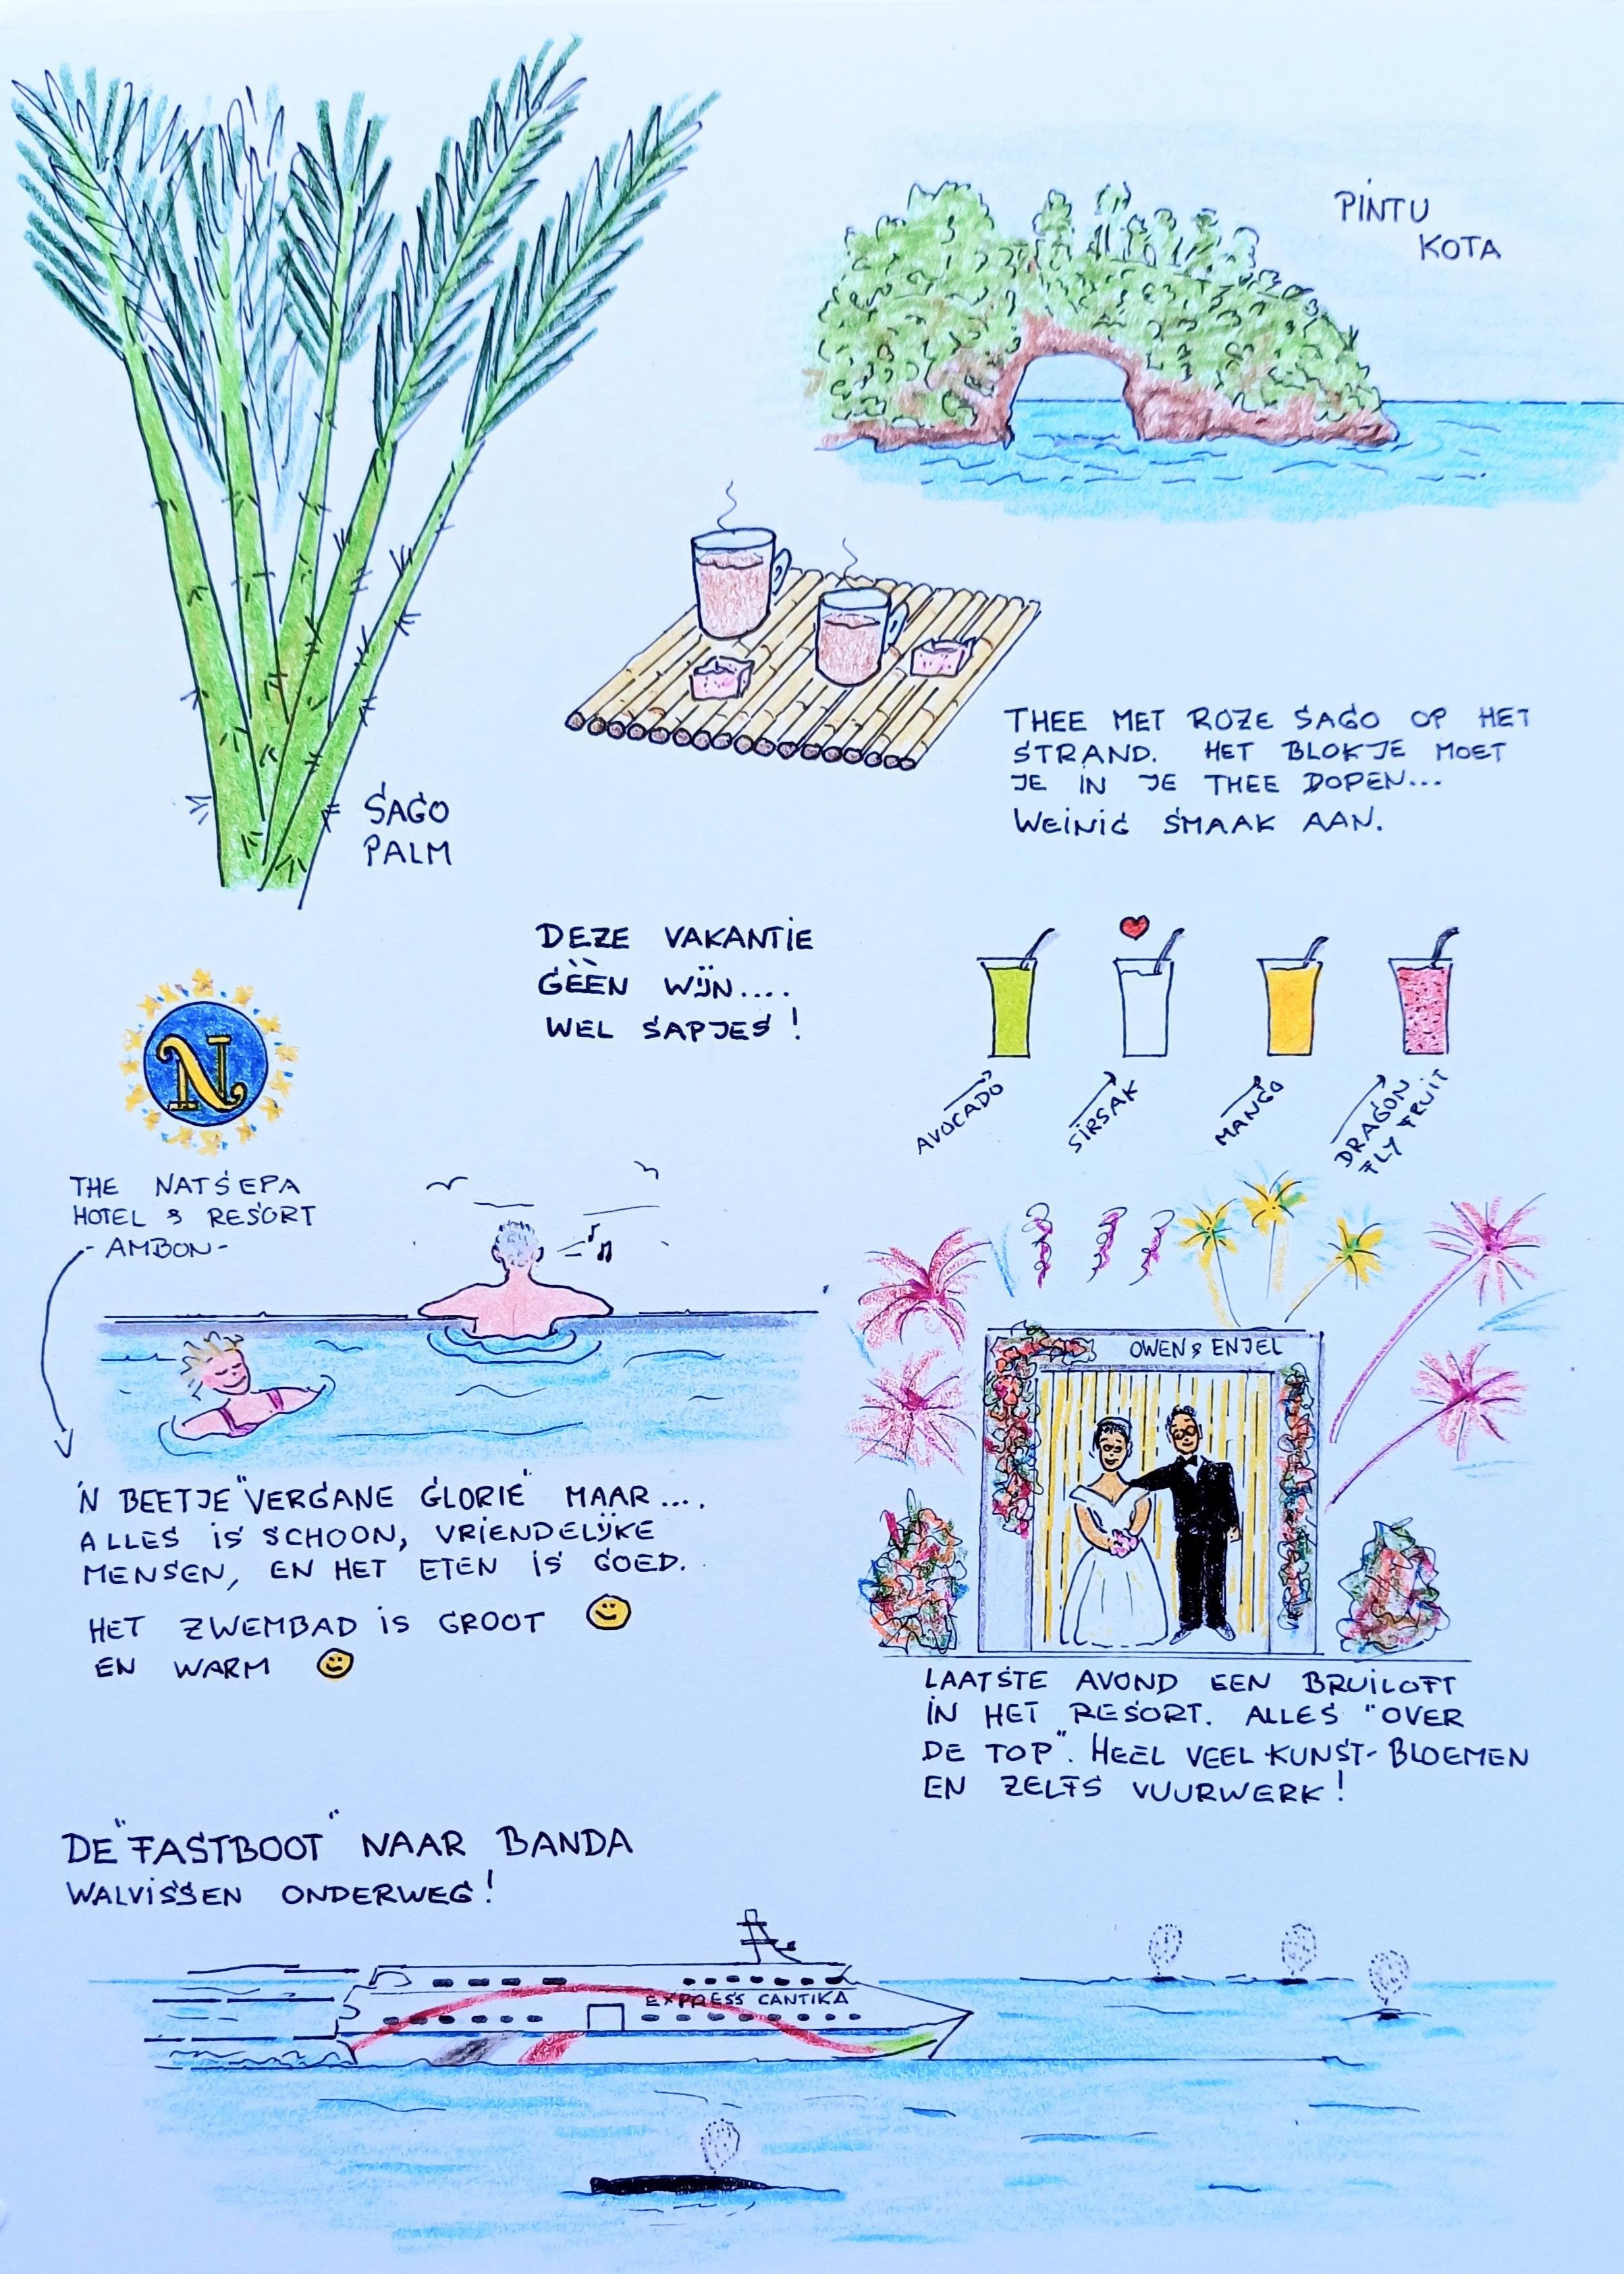 PINTU
KOTA
SAGO
PALM
THEE MET ROZE SAGO OP HET
STRAND. HET BLOKJE MOET
JE IN JE THEE DOPEN...
WEINIG SMAAK AAN.
DEZE VAKANTIE
GÈÈN WIJN....
WEL SAPJES!
AVOCADO
SIRSAK
MANGO
DRAGON
FLY FRUIT
N
THE NATSEPA
HOTEL & RESORT
- AMBON -
'N BEETJE "VERGANE GLORIE" MAAR....
ALLES IS SCHOON, VRIENDELIJKE
MENSEN, EN HET ETEN IS GOED.
HET ZWEMBAD IS GROOT
EN WARM
OWEN & ENJEL
LAATSTE AVOND EEN BRUILOFT
IN HET RESORT. ALLES "OVER
DE TOP". HEEL VEEL KUNST-BLOEMEN
EN ZELFS VUURWERK!
DE "FASTBOOT" NAAR BANDA
WALVISSEN ONDERWEG!
EXPRESS CANTIKA